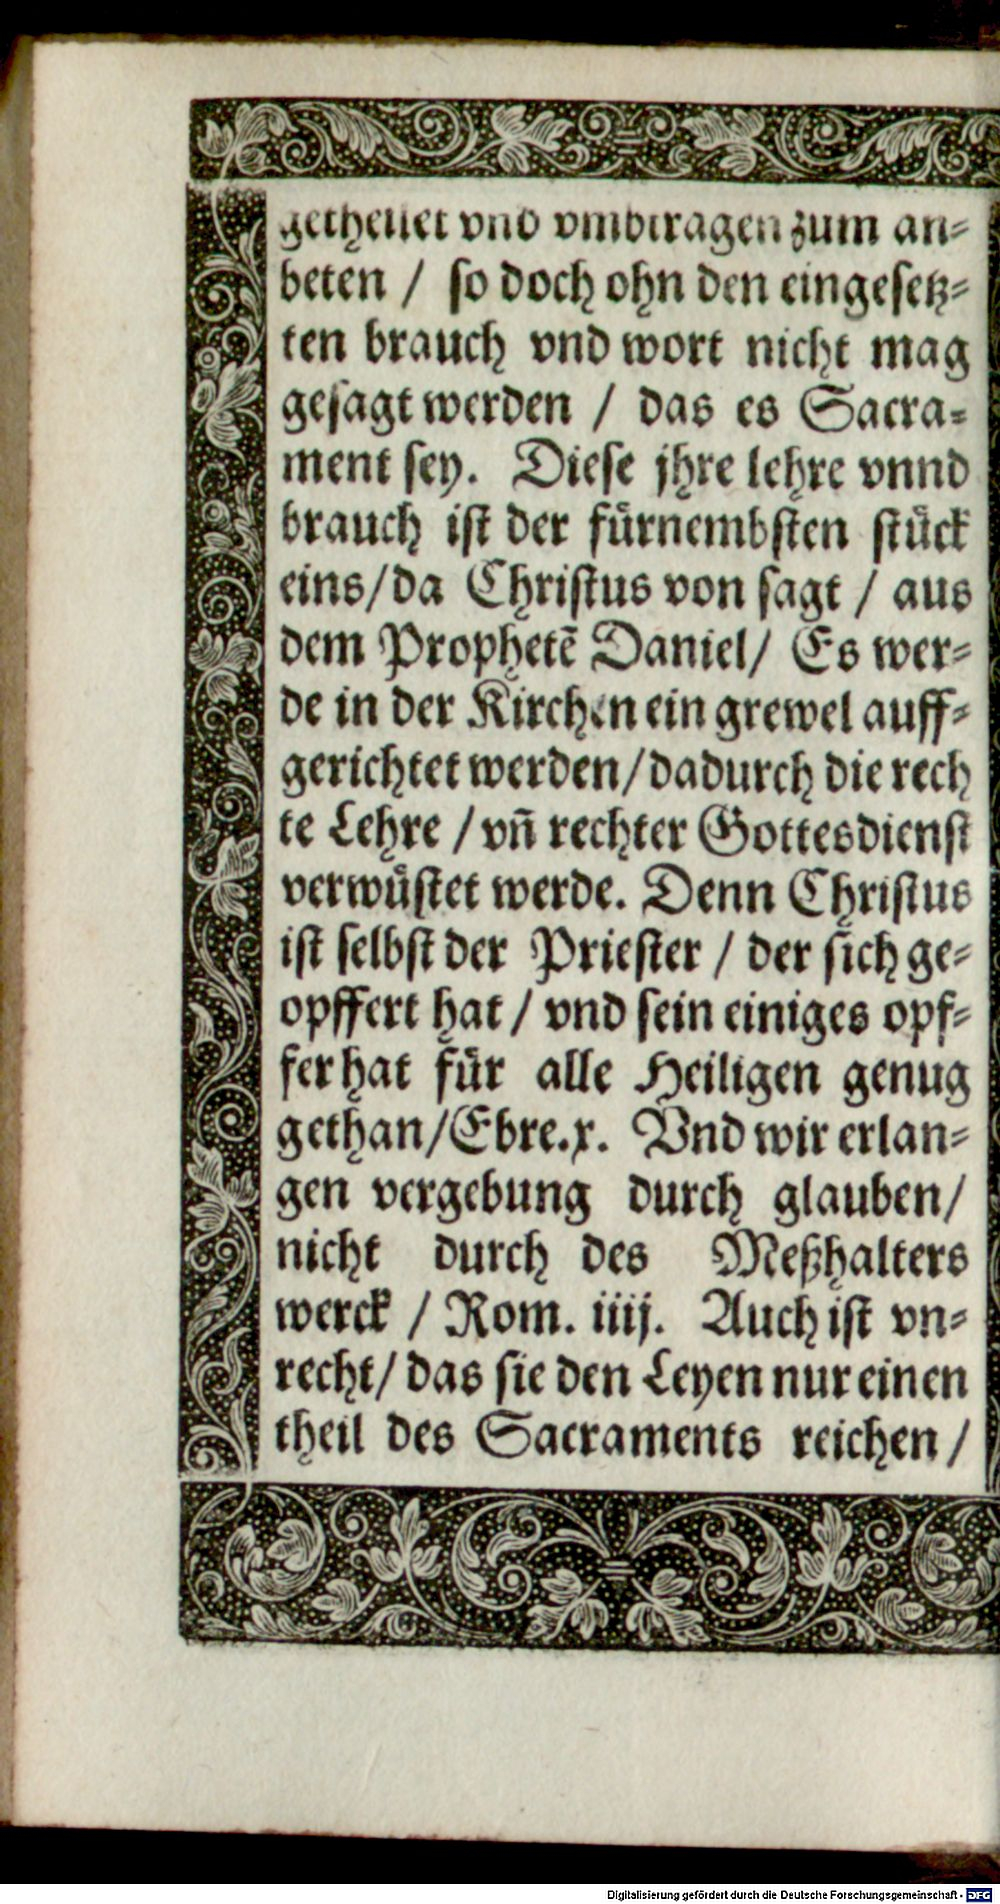 getheilet vnd vmbtragen zum an⸗
beten / so doch ohn den eingesetz⸗
ten brauch vnd wort nicht mag
gesagt werden / das es Sacra⸗
ment sey. Diese jhre lehre vnnd
brauch ist der fürnembsten stück
eins/ da Christus von sagt / aus
dem Prophetē Daniel/ Es wer⸗
de in der Kirchen ein grewel auff⸗
gerichtet werden/ dadurch die rech
te Lehre / vn̄ rechter Gottesdienst
verwüstet werde. Denn Christus
ist selbst der Priester / der sich ge⸗
opffert hat / vnd sein einiges opf⸗
fer hat für alle Heiligen genug
gethan/ Ebre. x. Vnd wir erlan⸗
gen vergebung durch glauben/
nicht durch des Meßhalters
werck / Rom. iiij. Auch ist vn⸗
recht/ das sie den Leyen nur einen
theil des Sacraments reichen /
Digitalisierung gefördert durch die Deutsche Forschungsgemeinschaft - DFG